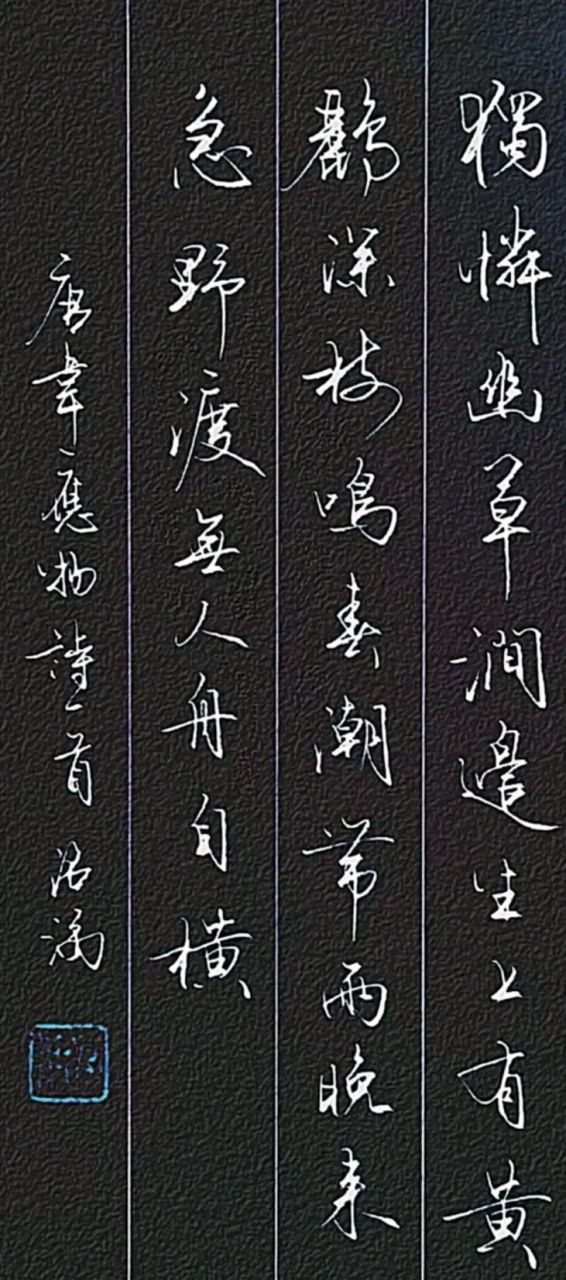 獨憐幽草澗邊生上有黄
鸝深枝鳴春潮帶雨晚来
急野渡無人舟自横
唐韋應物詩一首